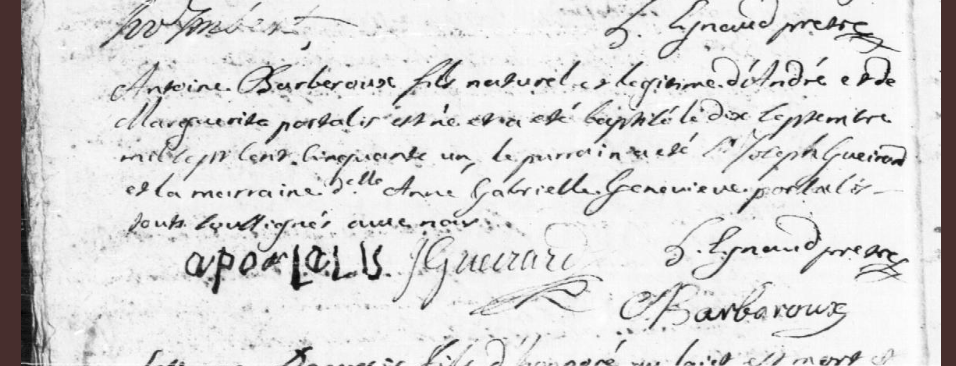 h. Eynaud pretre
Antoine Barberoux fils naturel et legitime d'André et de
Marguerite portalis est né et a eté baptisé le dix septembre
mil sept cent cinquante un, le parrain a eté Sr Joseph Gueirard
et la marraine delle Anne Gabrielle Genevieve portalis
tous soussignés avec nous
aportalis JGueirard h. Eynaud pretre
Barberoux
fils d'honoré est mort